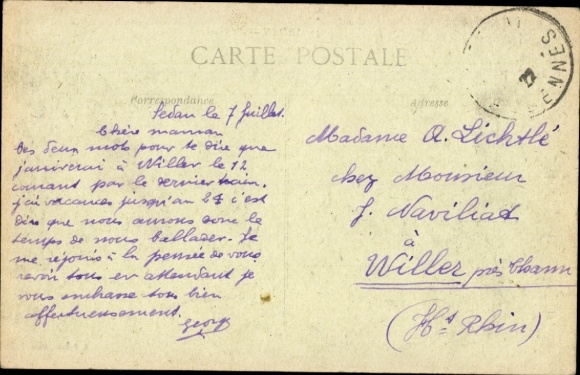 CARTE POSTALE
Correspondance
Adresse
Sedan le 7 Juillet.
Chère maman
Ces deux mots pour te dire que
j'arriverai à Willer le 12
courant par le dernier train.
j'ai vacances jusqu'au c'est
dire que nous aurons donc le
temps de nous ballader. Je
me réjouis à la pensée de vous
revoir tous en attendant je
vous embrasse tous bien
affectueusement.
Georg
Madame A. Lichtlé
chez Monsieur
J. Naviliat
à
Willer près Thann
(Ht Rhin)
ENNES